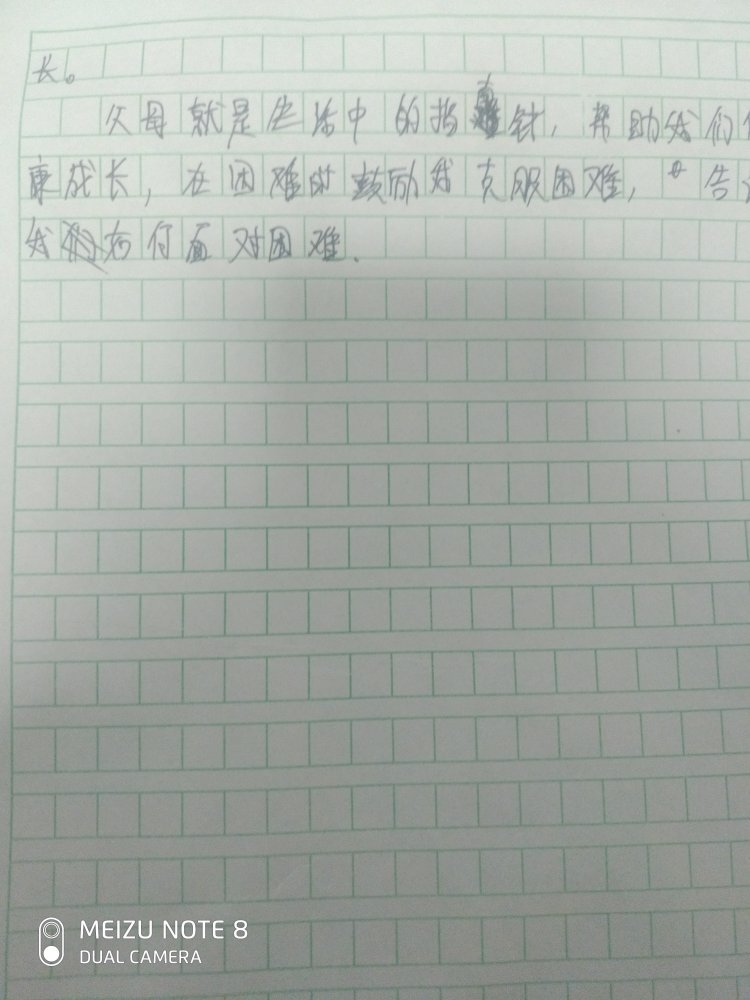 长。
父母就是生活中的指针，帮助我们
康成长，在困难时鼓励我克服困难，告
我如何面对困难.
MEIZU NOTE 8
DUAL CAMERA